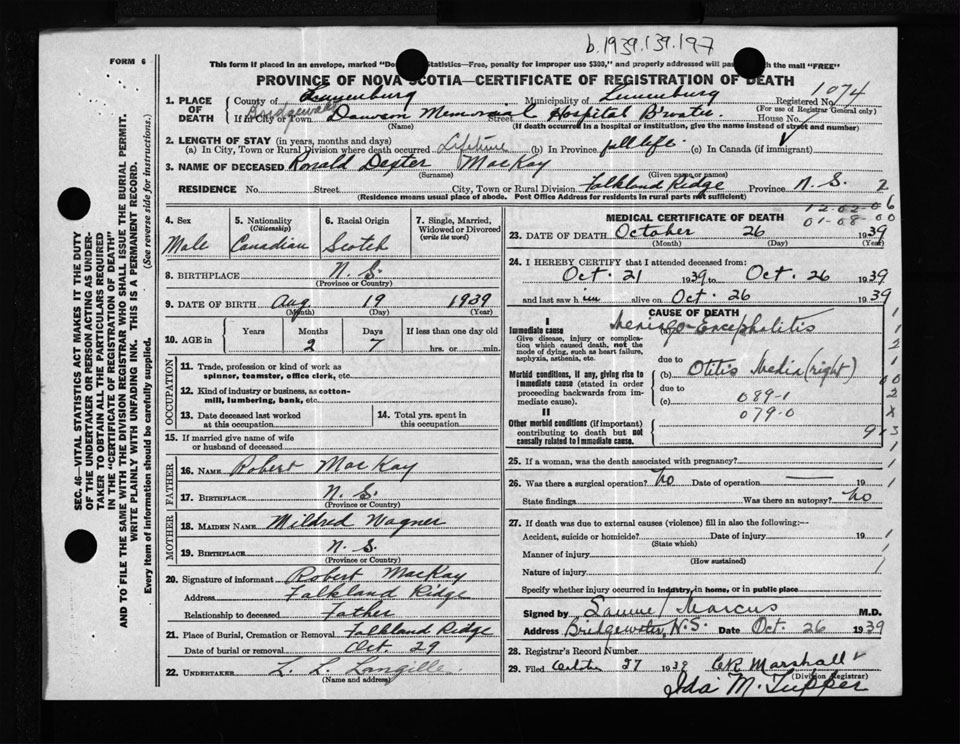 b.1939.139.197
FORM 6
This form if placed in an envelope, marked "Dominion Statistics—Free, penalty for improper use $300," and properly addressed will pass through the mail "FREE"
PROVINCE OF NOVA SCOTIA—CERTIFICATE OF REGISTRATION OF DEATH
1074
1. PLACE OF DEATH County of Lunenburg Municipality of Lunenburg Registered No.
(For use of Registrar General only)
Bridgewater
If in City or Town Dawson Memorial Hospital B'water Street House No.
(Name) (If death occurred in a hospital or institution, give the name instead of street and number)
2. LENGTH OF STAY (in years, months and days)
(a) In City, Town or Rural Division where death occurred Lifetime (b) In Province full life. (c) In Canada (if immigrant)
3. NAME OF DECEASED Ronald Dexter MacKay
(Surname) (Given name or names)
RESIDENCE No. Street City, Town or Rural Division Falkland Ridge Province N. S. 2
(Residence means usual place of abode. Post Office Address for residents in rural parts not sufficient)
SEC. 46—VITAL STATISTICS ACT MAKES IT THE DUTY
OF THE UNDERTAKER OR PERSON ACTING AS UNDER-
TAKER TO OBTAIN ALL THE PARTICULARS REQUIRED
IN THE "CERTIFICATE OF REGISTRATION OF DEATH"
AND TO FILE THE SAME WITH THE DIVISION REGISTRAR WHO SHALL ISSUE THE BURIAL PERMIT.
WRITE PLAINLY WITH UNFADING INK. THIS IS A PERMANENT RECORD.
Every item of information should be carefully supplied. (See reverse side for instructions.)
4. Sex 5. Nationality 6. Racial Origin 7. Single, Married,
(Citizenship) Widowed or Divorced
(write the word)
Male Canadian Scotch
8. BIRTHPLACE N. S.
(Province or Country)
9. DATE OF BIRTH Aug 19 1939
(Month) (Day) (Year)
10. AGE in Years Months Days If less than one day old
2 7 hrs. or min.
OCCUPATION
11. Trade, profession or kind of work as
spinner, teamster, office clerk, etc.
12. Kind of industry or business, as cotton-
mill, lumbering, bank, etc.
13. Date deceased last worked at this occupation
14. Total yrs. spent in this occupation
15. If married give name of wife
or husband of deceased
FATHER
16. NAME Robert MacKay
17. BIRTHPLACE N. S.
(Province or Country)
MOTHER
18. MAIDEN NAME Mildred Wagner
19. BIRTHPLACE N. S.
(Province or Country)
20. Signature of informant Robert MacKay
Address Falkland Ridge
Relationship to deceased Father
21. Place of Burial, Cremation or Removal Falkland Ridge
Date of burial or removal Oct. 29
22. UNDERTAKER L. L. Langille
(Name and address)
12-02-06
01-08-00
MEDICAL CERTIFICATE OF DEATH
23. DATE OF DEATH October 26 1939
(Month) (Day) (Year)
24. I HEREBY CERTIFY that I attended deceased from:
Oct. 21 1939 to Oct. 26 1939
and last saw him alive on Oct. 26 1939
CAUSE OF DEATH
I
Immediate cause
Give disease, injury or complica-
tion which caused death, not the
mode of dying, such as heart failure,
asphyxia, asthenia, etc.
(a) Meningo-Encephalitis
due to
Morbid conditions, if any, giving rise to
immediate cause (stated in order
proceeding backwards from im-
mediate cause).
(b) Otitis Media (right)
due to
(c) 089-1
079-0
II
Other morbid conditions (if important)
contributing to death but not
causally related to immediate cause.
25. If a woman, was the death associated with pregnancy?
26. Was there a surgical operation? No Date of 19
State findings Was there an autopsy? No
27. If death was due to external causes (violence) fill in also the following:—
Accident, suicide or homicide? Date of injury 19
(State which)
Manner of injury
(How sustained)
Nature of injury
Specify whether injury occurred in industry, in home, or in public place
Signed by Marcus M.D.
Address Bridgewater, N.S. Date Oct. 26 1939
28. Registrar's Record Number
29. Filed 27 1939 C R Marshall
(Division Registrar)
Ida M. Tupper